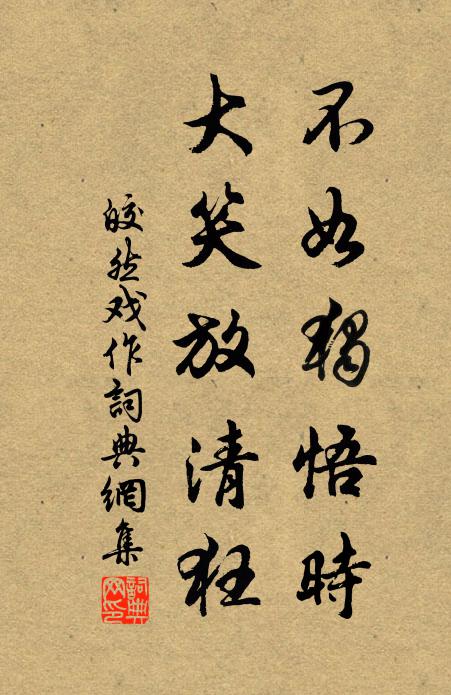 不如獨悟時
大笑放清狂
皎然戏作詞典網集
詞典网印